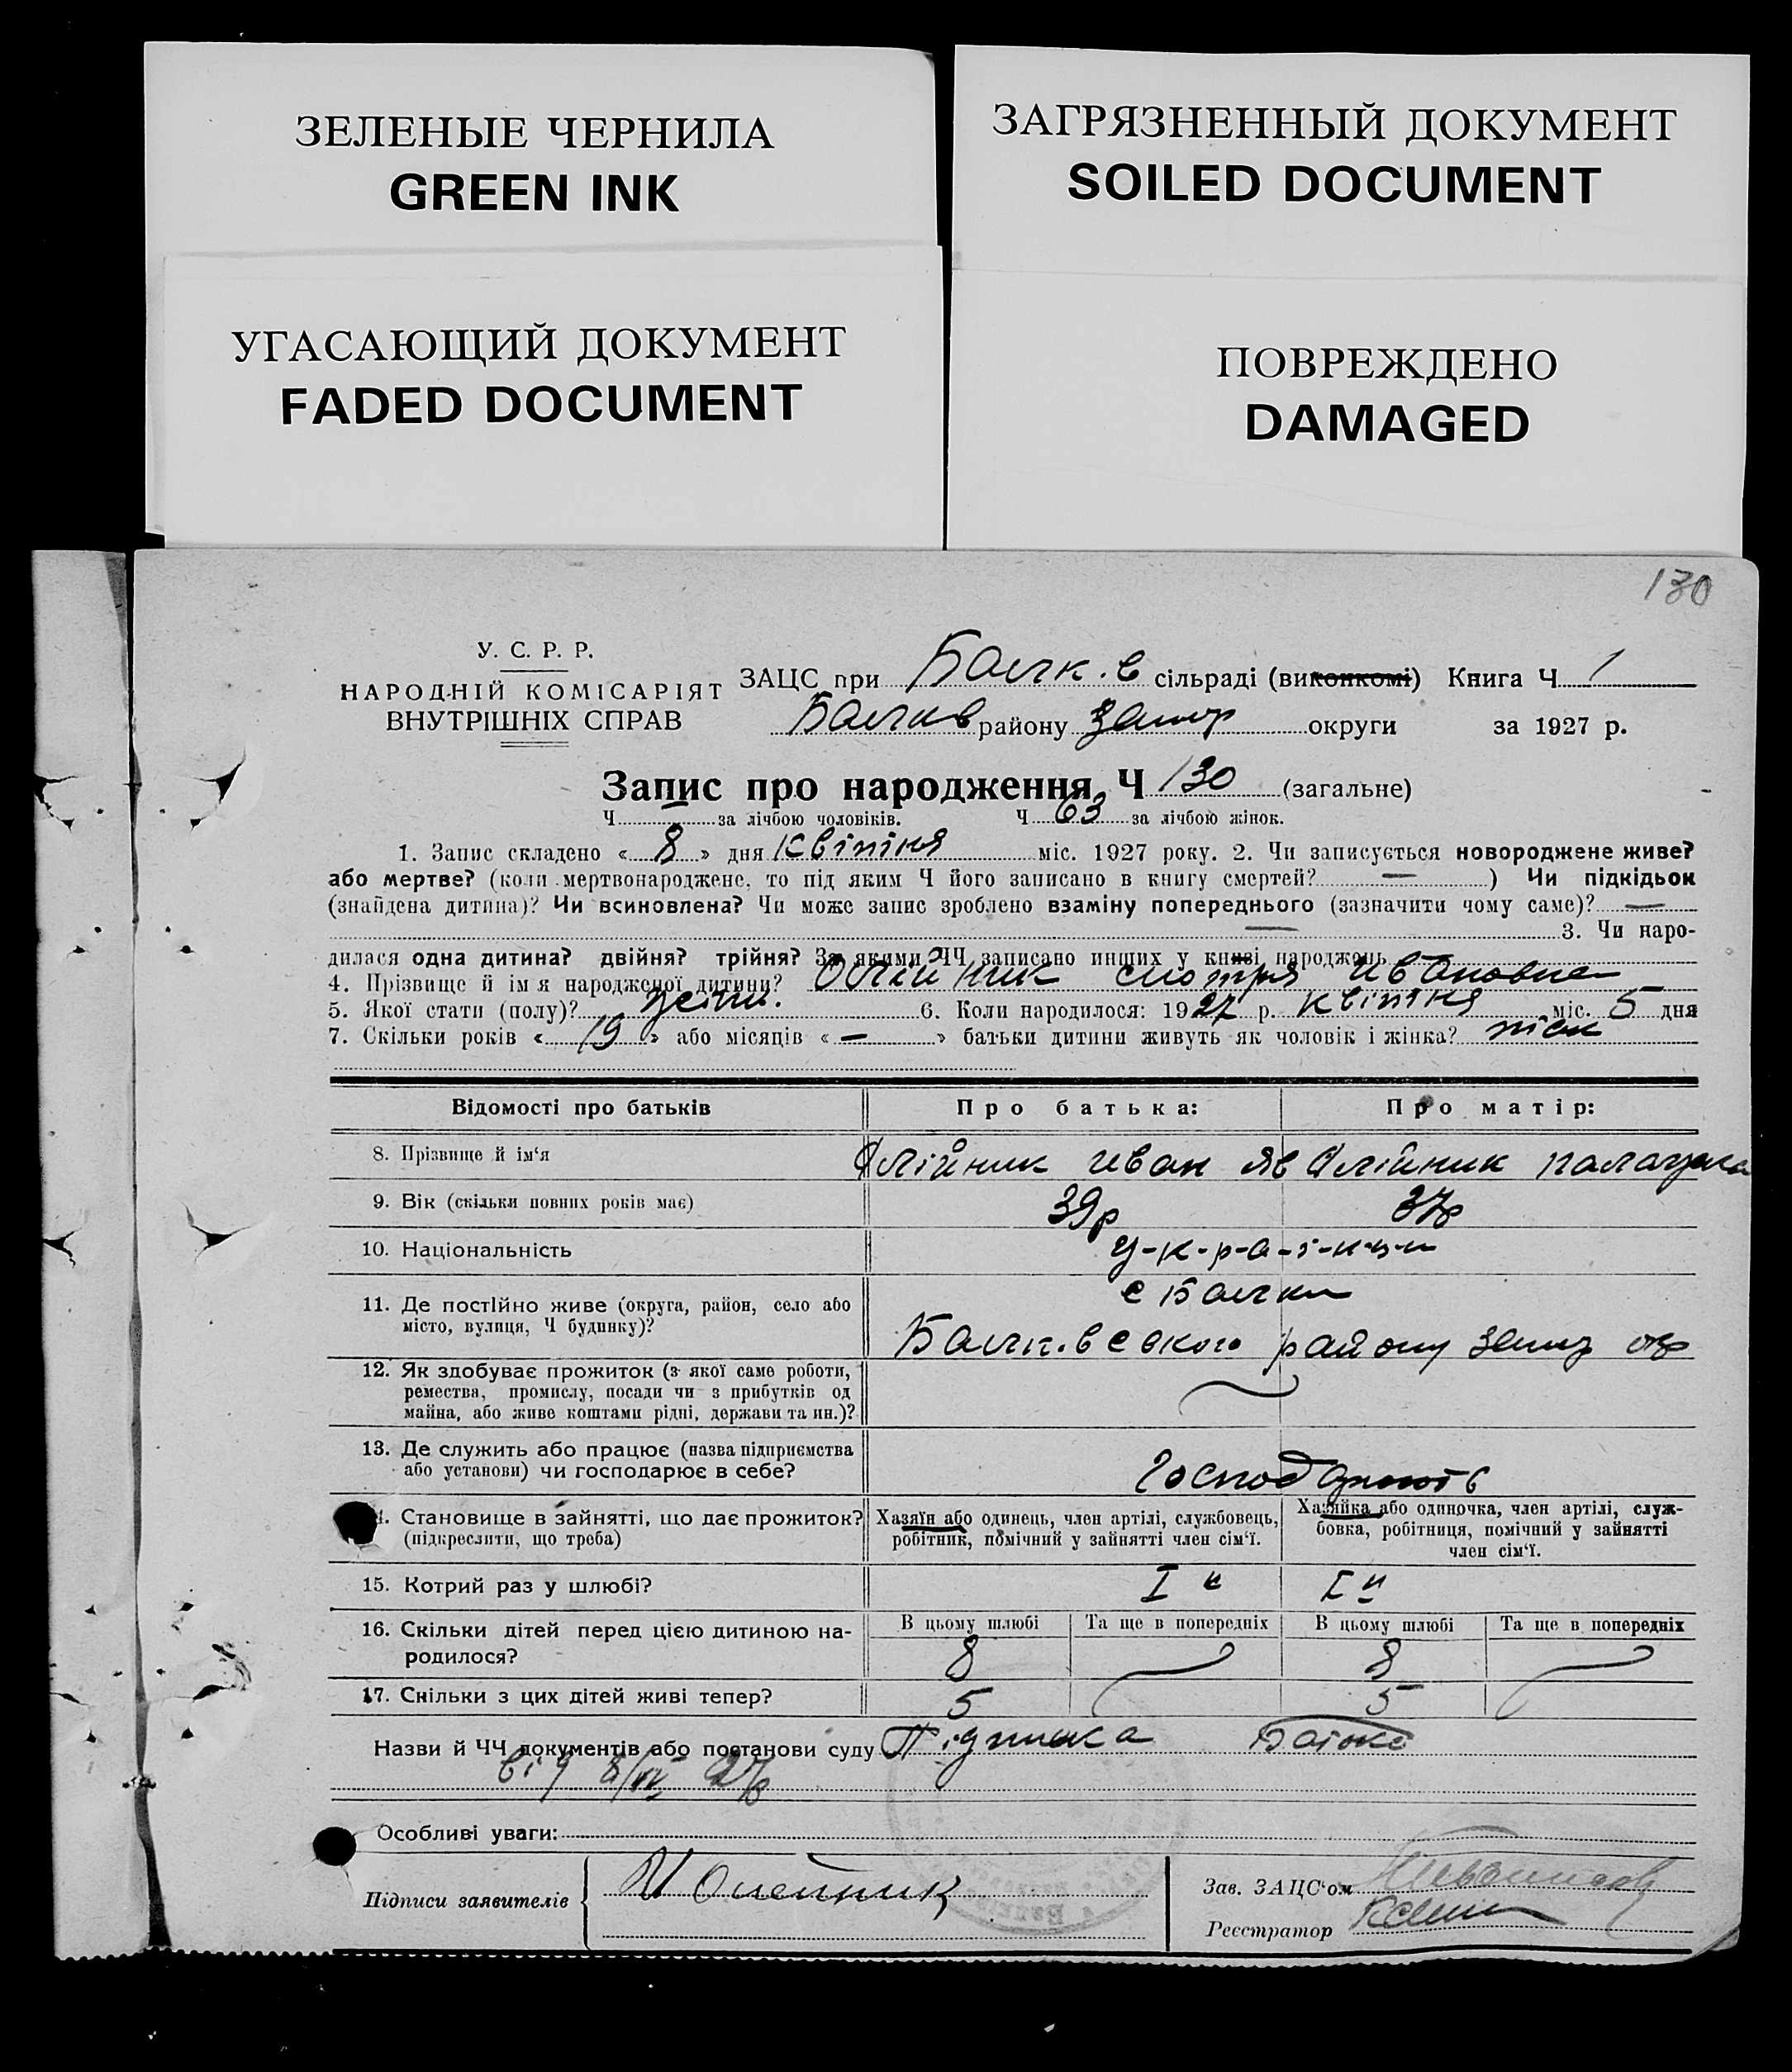 ЗЕЛЕНЫЕ ЧЕРНИЛА
GREEN INK
ЗАГРЯЗНЕННЫЙ ДОКУМЕНТ
SOILED DOCUMENT
УГАСАЮЩИЙ ДОКУМЕНТ
FADED DOCUMENT
ПОВРЕЖДЕНО
DAMAGED
130
У. С. Р. Р.
НАРОДНІЙ КОМІСАРІЯТ
ВНУТРІШНІХ СПРАВ
ЗАЦС при сільраді (виконкомі) Книга Ч 1
району округи за 1927 р.
Запис про народження Ч 130 (загальне)
Ч — за лічбою чоловіків. Ч 63 за лічбою жінок.
1. Запис складено « 8 » дня квітня міс. 1927 року. 2. Чи записується новороджене живе?
або мертве? (коли мертвонароджене, то під яким Ч його записано в книгу смертей? — ) Чи підкідьок
(знайдена дитина)? Чи всиновлена? Чи може запис зроблено взаміну попереднього (зазначити чому саме)? —
— 3. Чи наро-
дилася одна дитина? двійня? трійня? За якими ЧЧ записано инших у книзі народжень
4. Прізвище й ім'я народженої дитини? Олійник Ивановна
5. Якої стати (полу)? 6. Коли народилося: 1927 р. квітня міс. 5 дня
7. Скільки років « 19 » або місяців « — » батьки дитини живуть як чоловік і жінка?
Відомості про батьків Про батька: Про матір:
8. Прізвище й ім'я Олійник Иван Яв Олійник
9. Вік (скільки повних років має) 39р 37р
10. Національність у-к-р-а-ї-н-ц-и
11. Де постійно живе (округа, район, село або
місто, вулиця, Ч будинку)? с Балки
району
12. Як здобуває прожиток (з якої саме роботи,
ремества, промислу, посади чи з прибутків од
майна, або живе коштами рідні, держави та ин.)?
13. Де служить або працює (назва підприємства
або установи) чи господарює в себе?
14. Становище в зайнятті, що дає прожиток?
(підкреслити, що треба)
Хазяїн або одинець, член артілі, службовець,
робітник, помічний у зайнятті член сім'ї.
Хазяйка або одиночка, член артілі, служ-
бовка, робітниця, помічний у зайнятті
член сім'ї.
15. Котрий раз у шлюбі? I й I й
16. Скільки дітей перед цією дитиною на-
родилося?
В цьому шлюбі Та ще в попередніх В цьому шлюбі Та ще в попередніх
8 8
17. Скільки з цих дітей живі тепер? 5 5
Назви й ЧЧ документів або постанови суду Підписка
від 8/IV 27р
Особливі уваги:
Підписи заявителів И Олейник
Зав. ЗАЦС'ом
Реєстратор